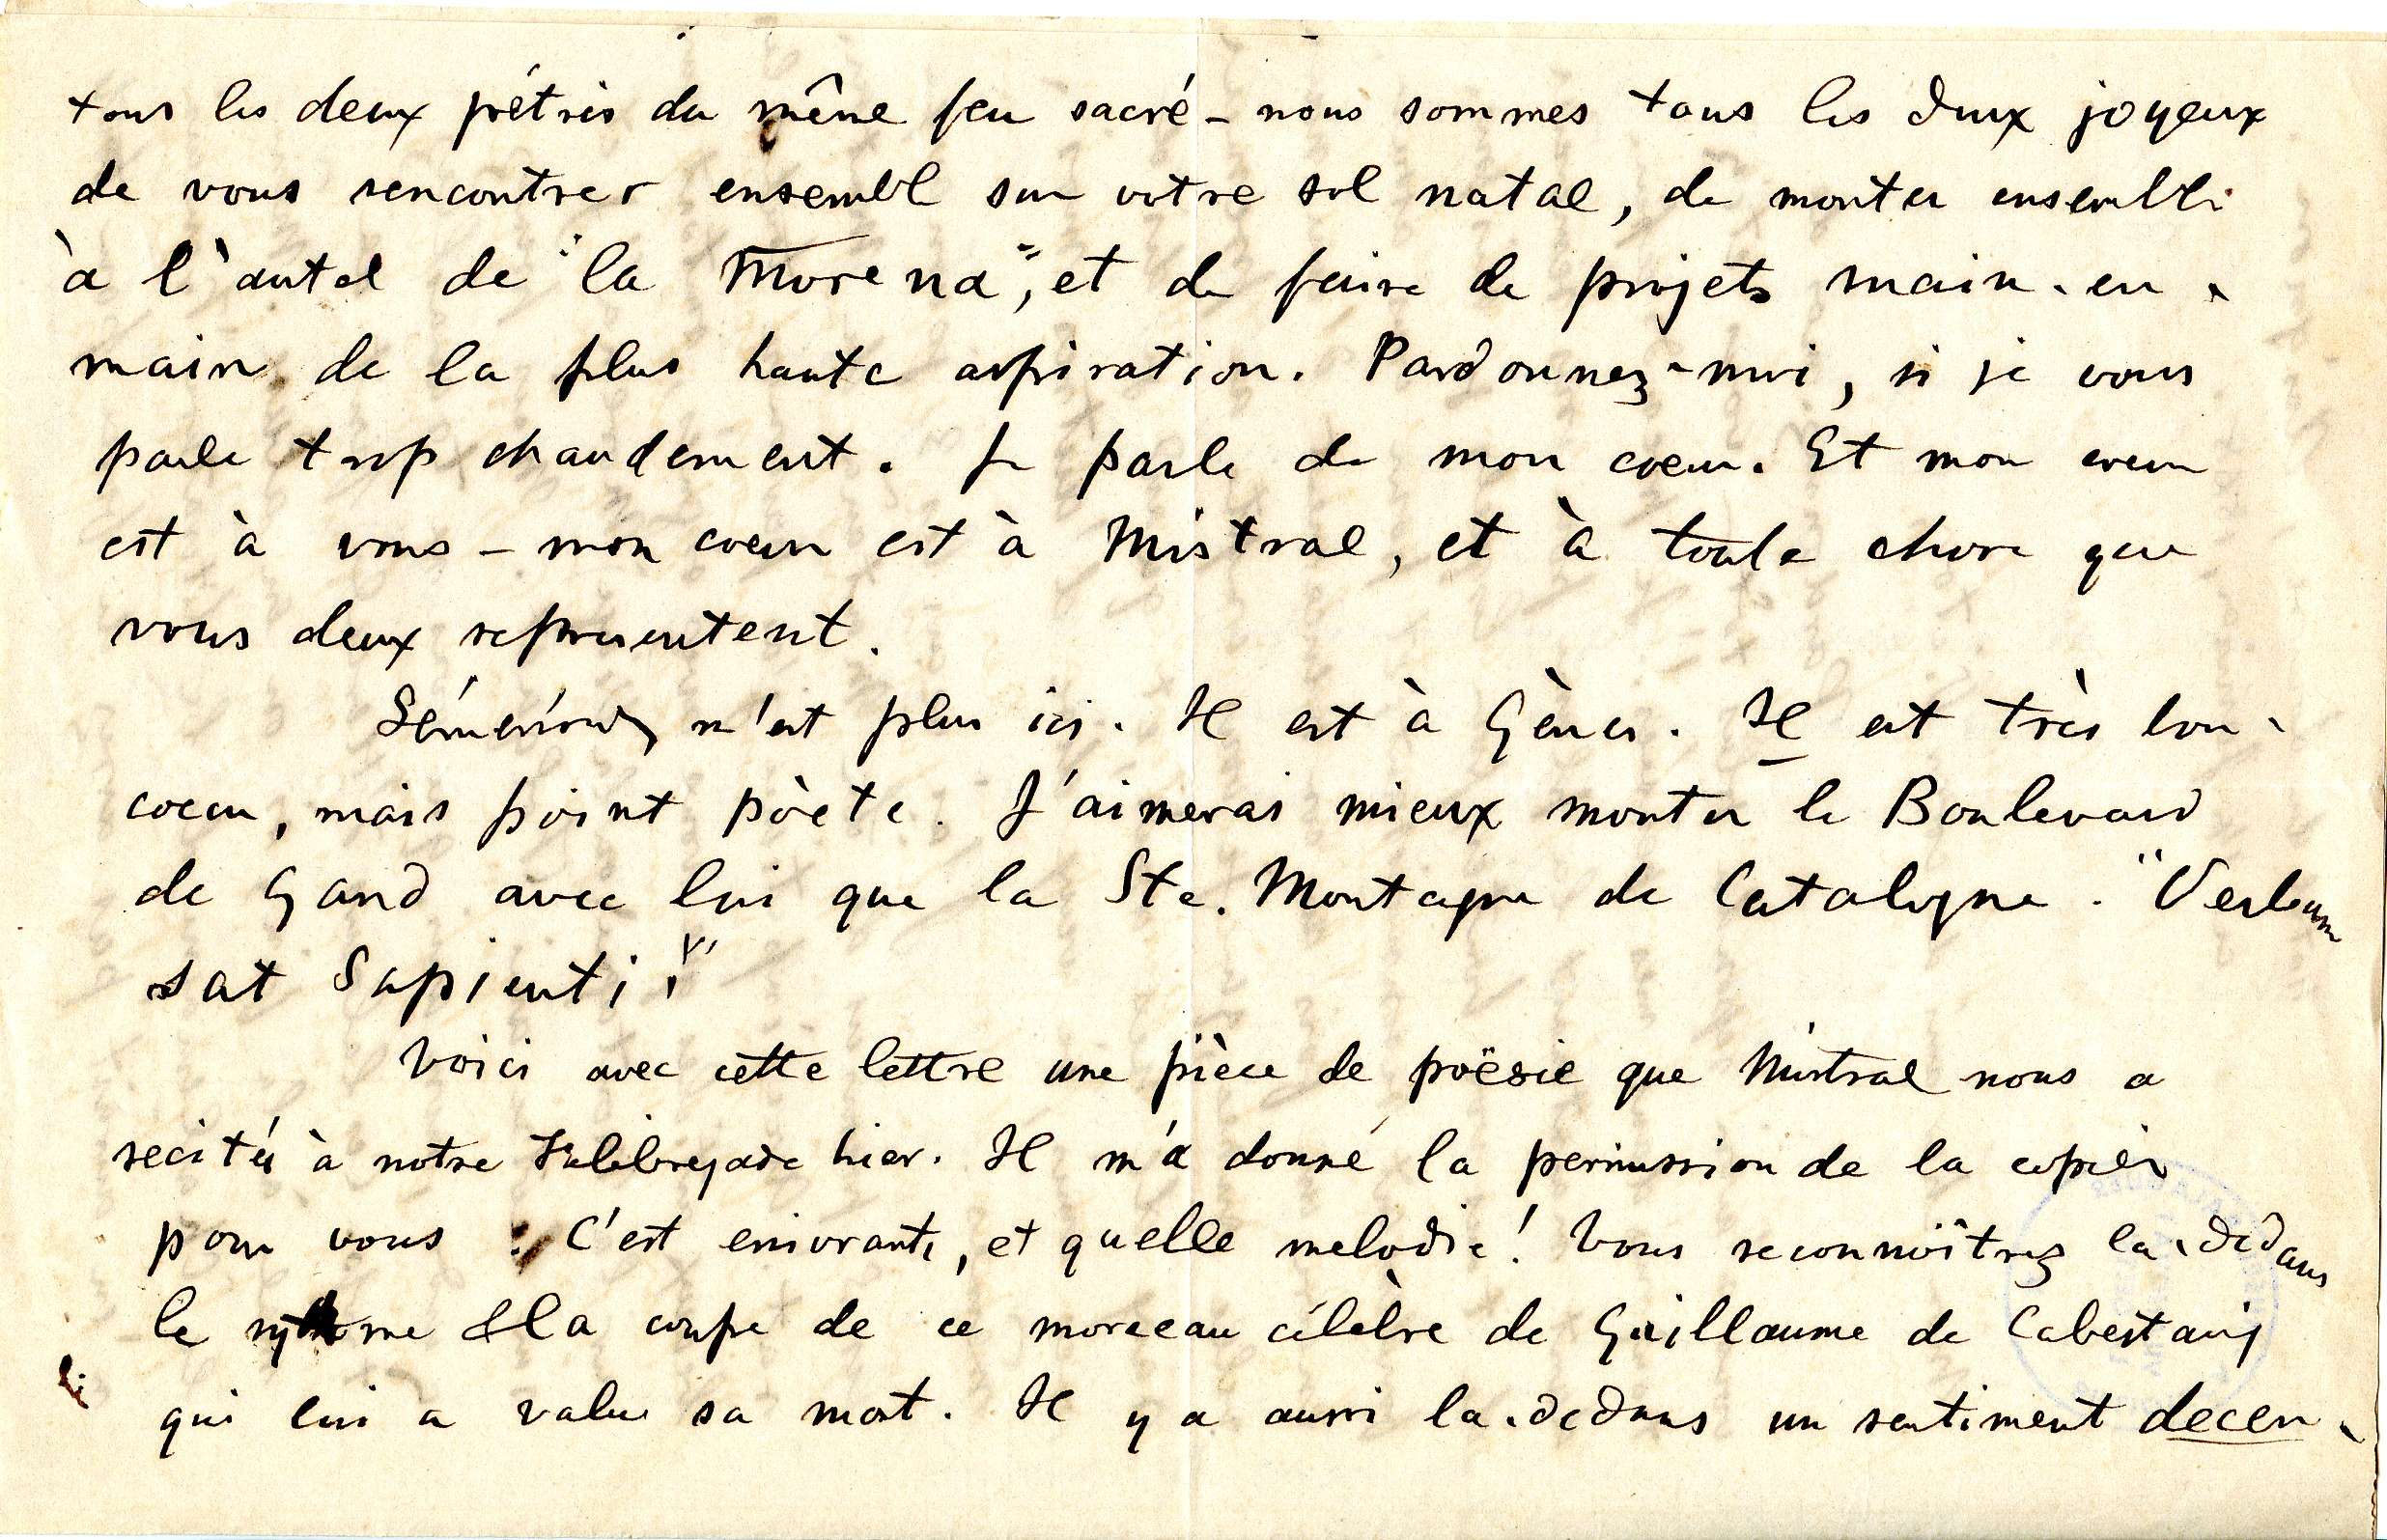 tous les deux pétris du même feu sacré - nous sommes tous les deux joyeux
de vous rencontrer ensembl sur votre sol natal, de monter ensemble
à l'autel de "la Morena", et de faire de projets main-en-
main de la plus haute aspiration. Pardonnez-moi, si je vous
parle trop chaudement. Je parle de mon coeur. Et mon coeur
est à vous - mon coeur est à Mistral, et à toute chose que
vous deux representent.
n'est plus ici. Il est à Gènes. Il est très bon-
coeur, mais point pòete. J'aimerais mieux monter le Boulevard
de Gand avec lui que la Ste. Montagne de Catalogne. "Verbum
sat Sapienti!"
Voici avec cette lettre une pièce de poësie que Mistral nous a
recitée à notre Felibrejade hier. Il m'a donné la permission de la copier
pour vous. C'est enivrante, et quelle melodie! Vous reconnoîtrez la-dedans
le rythme & la coupe de ce morceau célèbre de Guillaume de Cabestaing
qui lui a value sa mort. Il y a aussi la-dedans un sentiment decen-